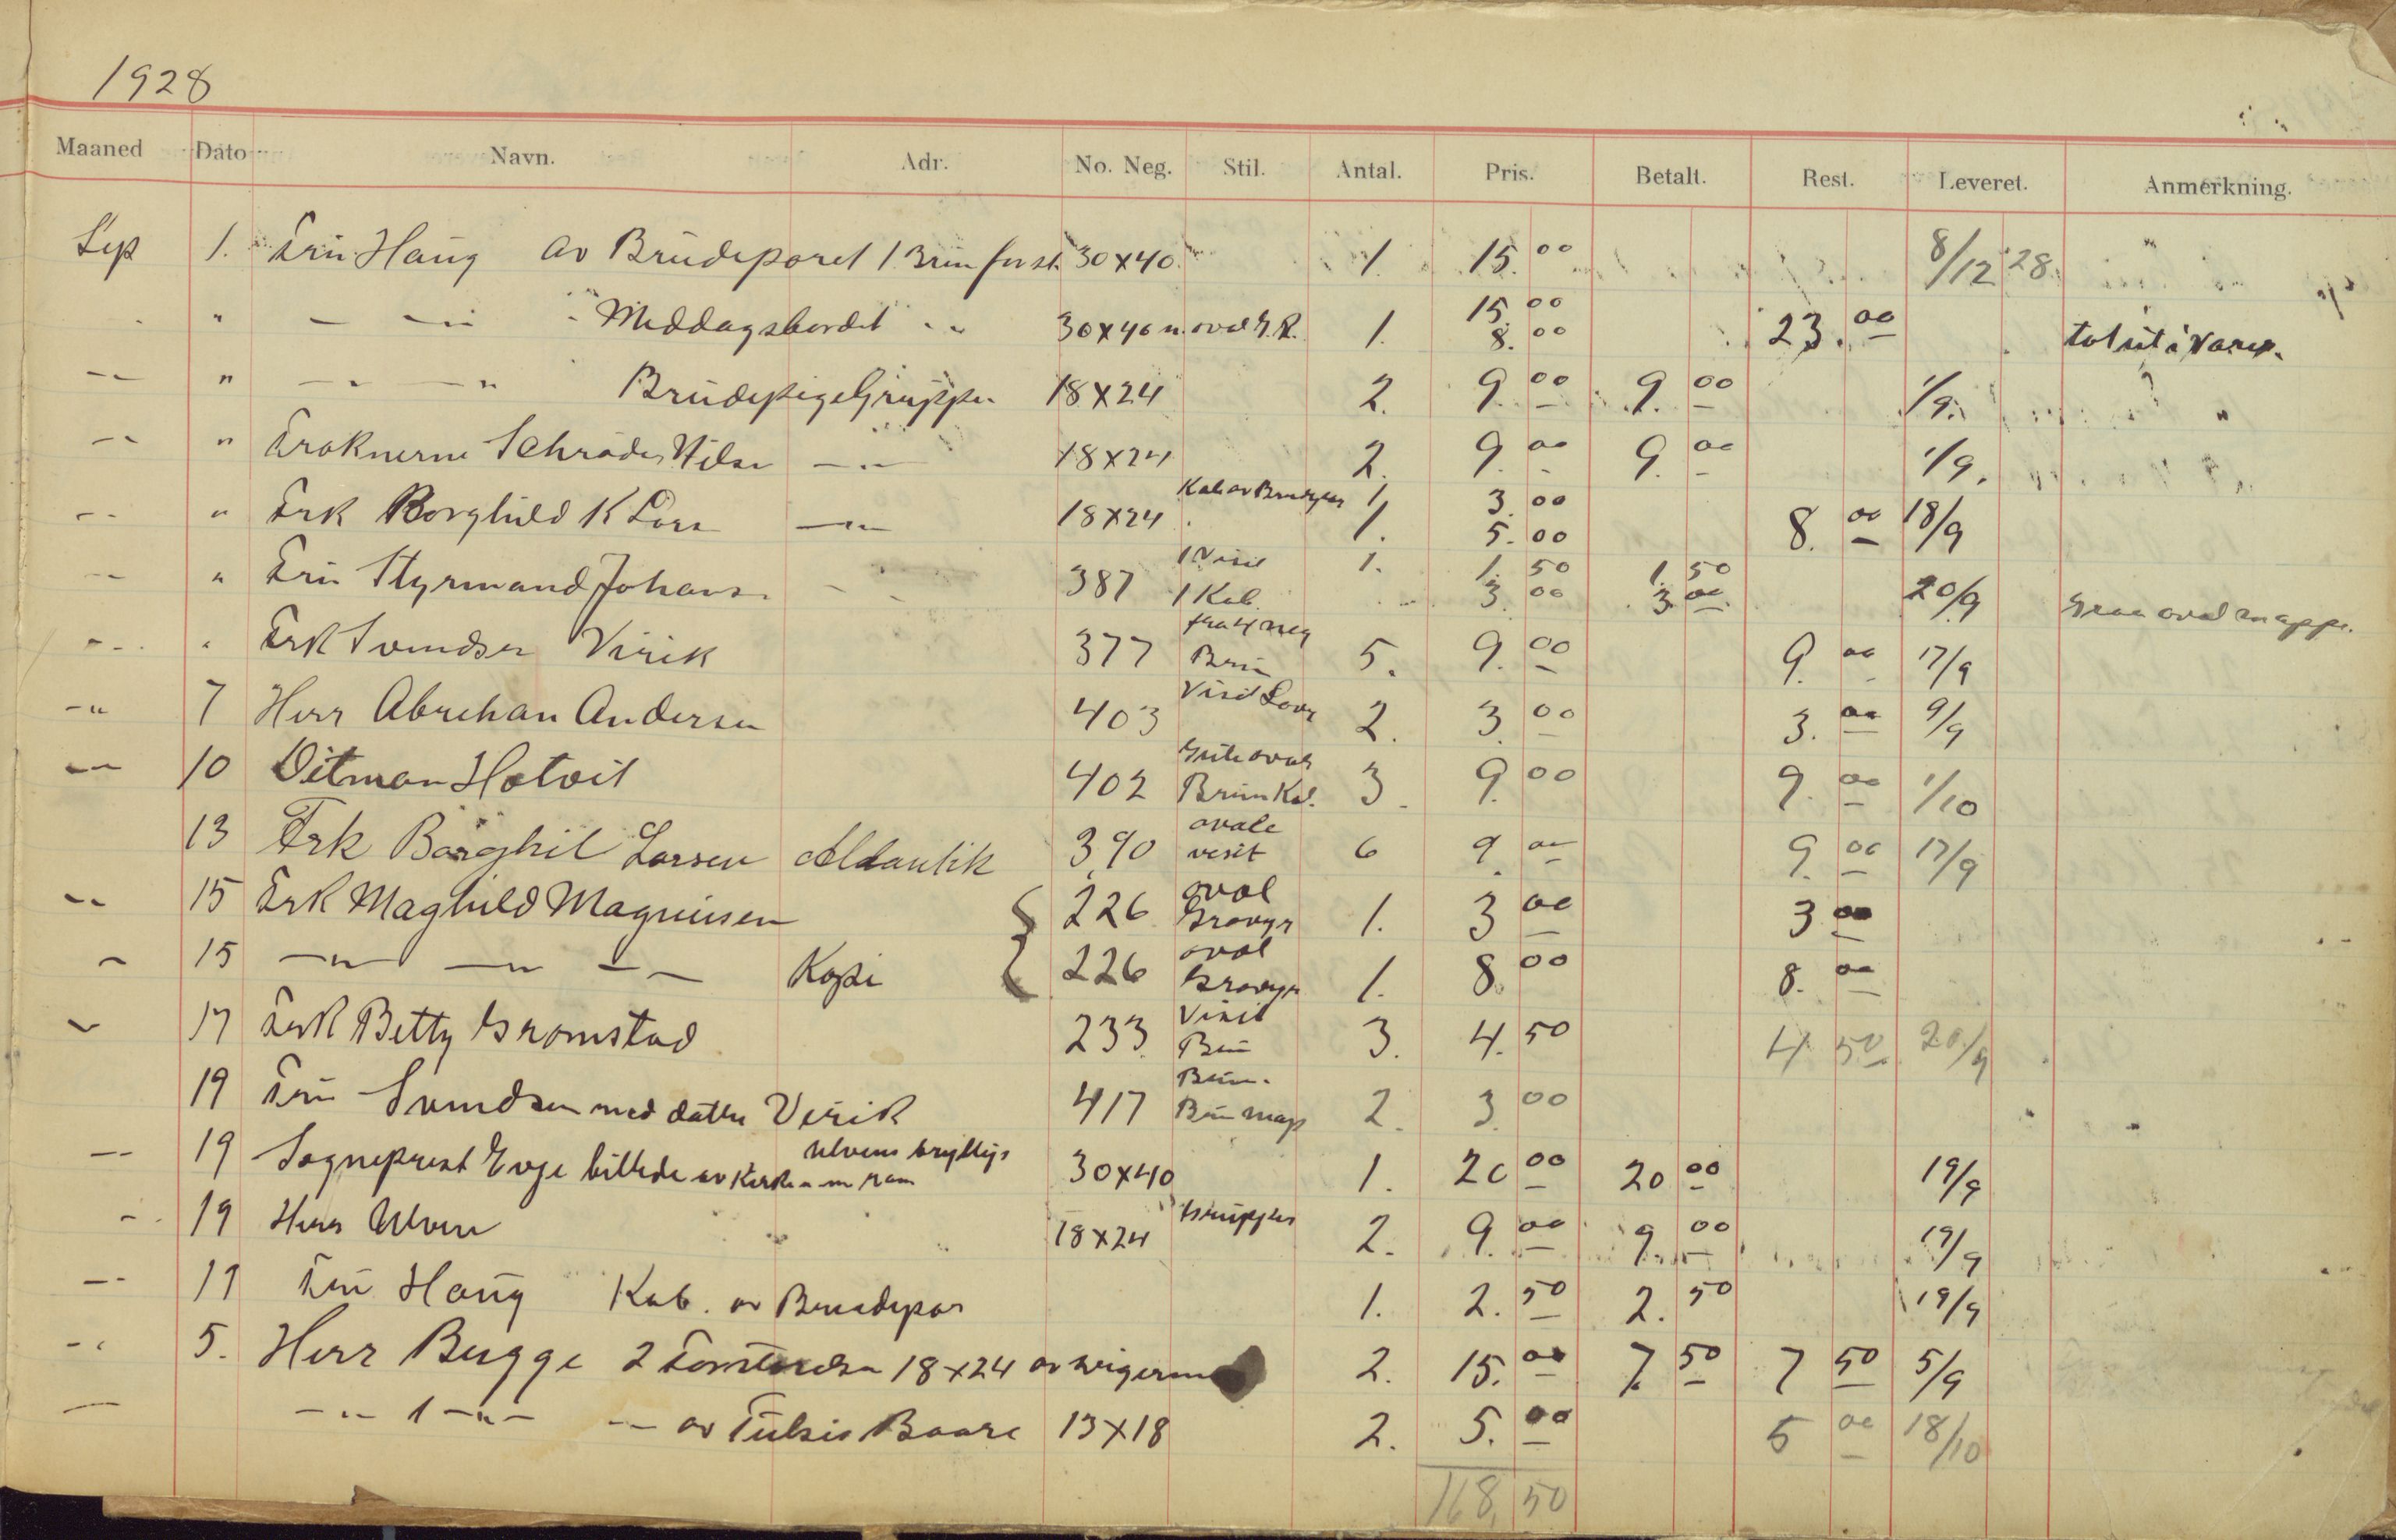 1928
Maaned Dato Navn. Adr. No. Neg. Stil. Antal. Pris. Betalt. Rest. Leveret. Anmerkning.
Sep 1. Fru Haug av Brudeparet 1 Brun forst. 30x40 1 15.00 8/12 28
" — -"- Middagsbordet -"- 30x40 m. oval G.R. 1. 15.00 8.00 23.00 tat ut i varer.
-"- " -"- -"- Brudepige Gruppen 18x24 2. 9.00 9.00 1/9.
-"- " Frøknerne Schrøder -"- 18x24 2. 9.00 9.00 1/9.
-"- " Frk Borghild K Lars -"- 18x24 Kab av 1. 3.00 1. 5.00 8.00 18/9
-"- " Fru Styrmand Johans. -"- 387 1 Visit 1 Kab. 1. 1.50 3.00 1.50 3.00 20/9 Graa oval mappe.
-"- " Frk Svendsen Virik 377 fra 4 neg Brun 5. 9.00 9.00 17/9
-"- 7 Herr Abrehan Andersen 403 Visit 2. 3.00 3.00 9/9
-"- 10 Ditman Hotvit 402 oval Brun Kab. 3. 9.00 9.00 1/10
13 Frk Borghil Larsen Atlantik 390 ovale visit 6 9.00 9.00 17/9
-"- 15 Frk Maghild Magnussen 226 oval Gravyr 1. 3.00 3.00
-"- 15 -"- -"- -"- Kopi 226 oval Gravyr 1. 8.00 8.00
-"- 17 Frk Betty Gromstad 233 Visit Brun 3. 4.50 4.50 20/9
19 Fru Svendsen med datter Virik 417 Brun. Brun map 2. 3.00
-"- 19 Sogneprest Evje billede av Kirken m ram Ulvens bryllup 30x40 1. 20.00 20.00 19/9
-"- 19 Herr Ulven 18x24 Gruppen 2. 9.00 9.00 19/9
-"- 19 Fru Haug Kab. av Brudepar 1. 2.50 2.50 19/9
-"- 5. Herr Bugge 2 Forstørrelser 18x24 av 2. 15.00 7.50 7 50 5/9
— -"- 1 -"- -"- av Baare 13x18 2. 5.00 5 00 18/10
168,50